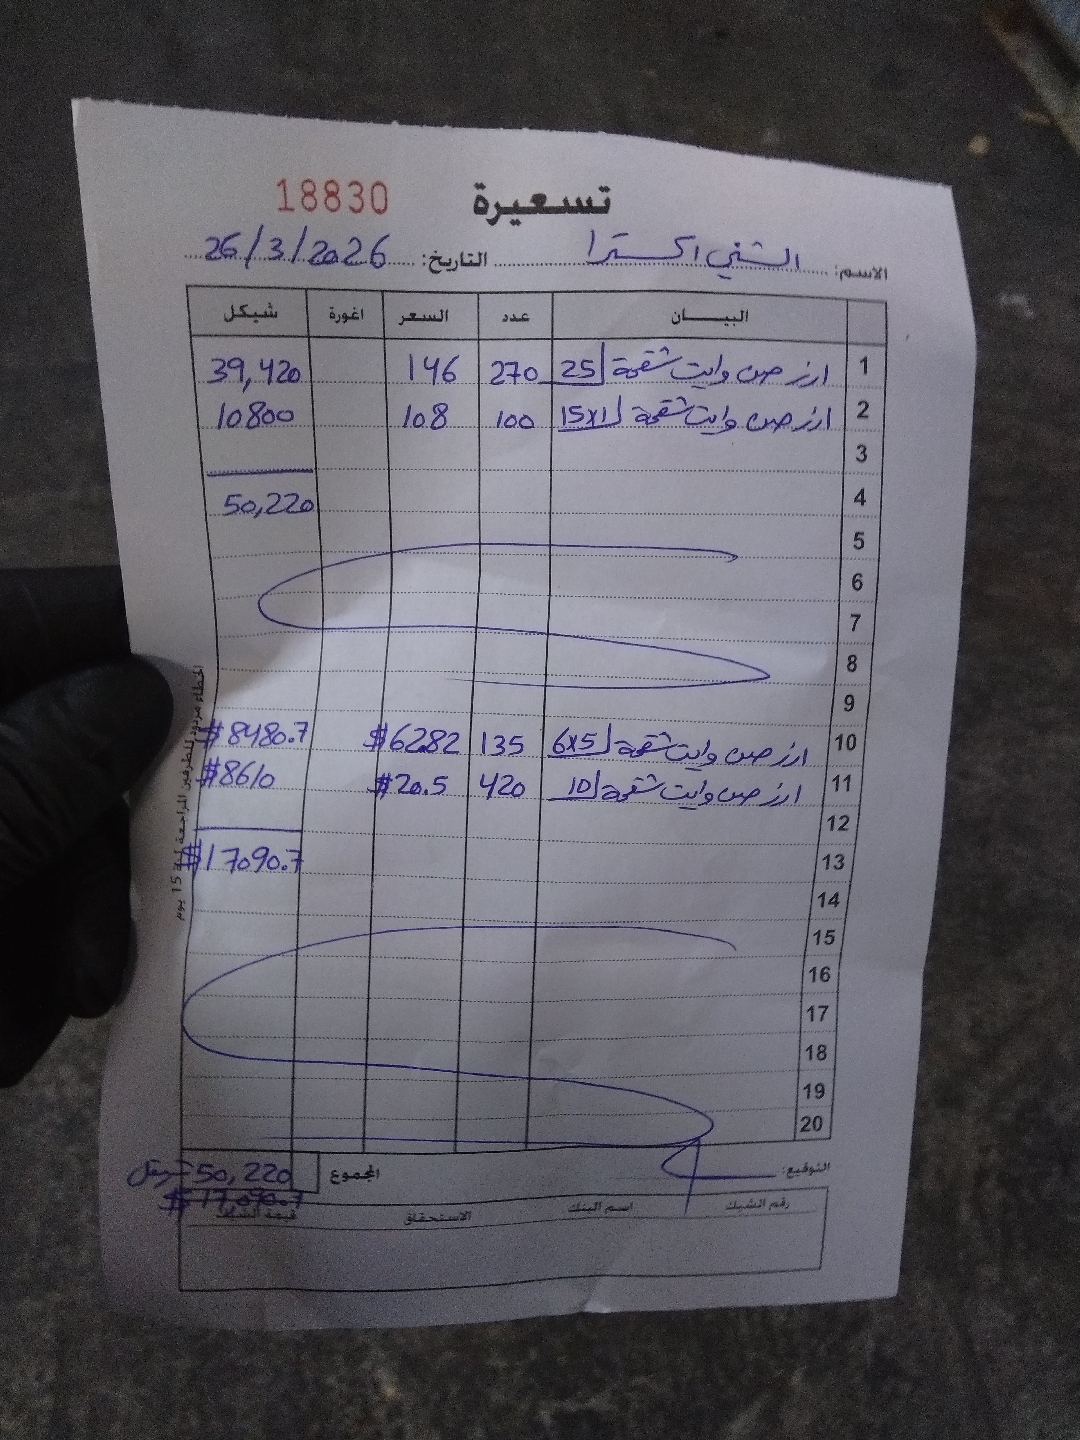 تسعيرة 18830
الاسم: الشني اكسترا التاريخ: 26/3/2026
البيـــان عدد السعر اغورة شيكل
1 ارز صن وايت شقحة 25 270 146 39,420
2 ارز صن وايت شقحة 15x1 100 108 10800
3
4 50,220
5
6
7
8
9
10 ارز صن وايت شقحة 6x5 135 $62.82 $8480.7
11 ارز صن وايت شقحة 10 420 $20.5 $8610
12
13 $17090.7
14
15
16
17
18
19
20
التوقيع: المجموع 50,220 شيكل
$17,090.7
رقم الشيك اسم البنك الاستحقاق قيمة الشيك
الخطاء مردود للطرفين المراجعة 15 يوم